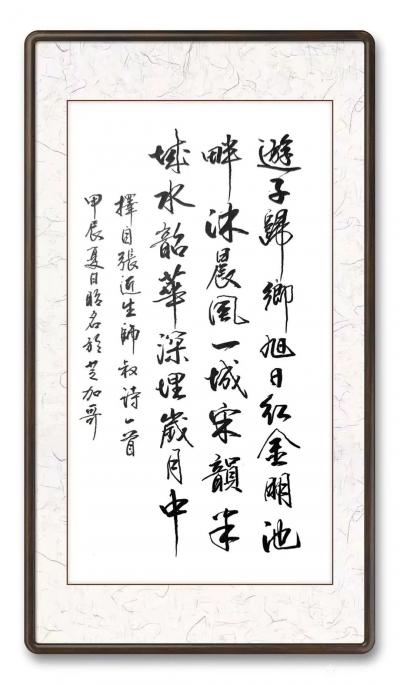 遊子歸鄉旭日紅金明池
畔沐晨風一城宋韻半
城水韶華深埋歲月中
擇自張近生師叔诗一首
甲辰夏日昭名於芝加哥